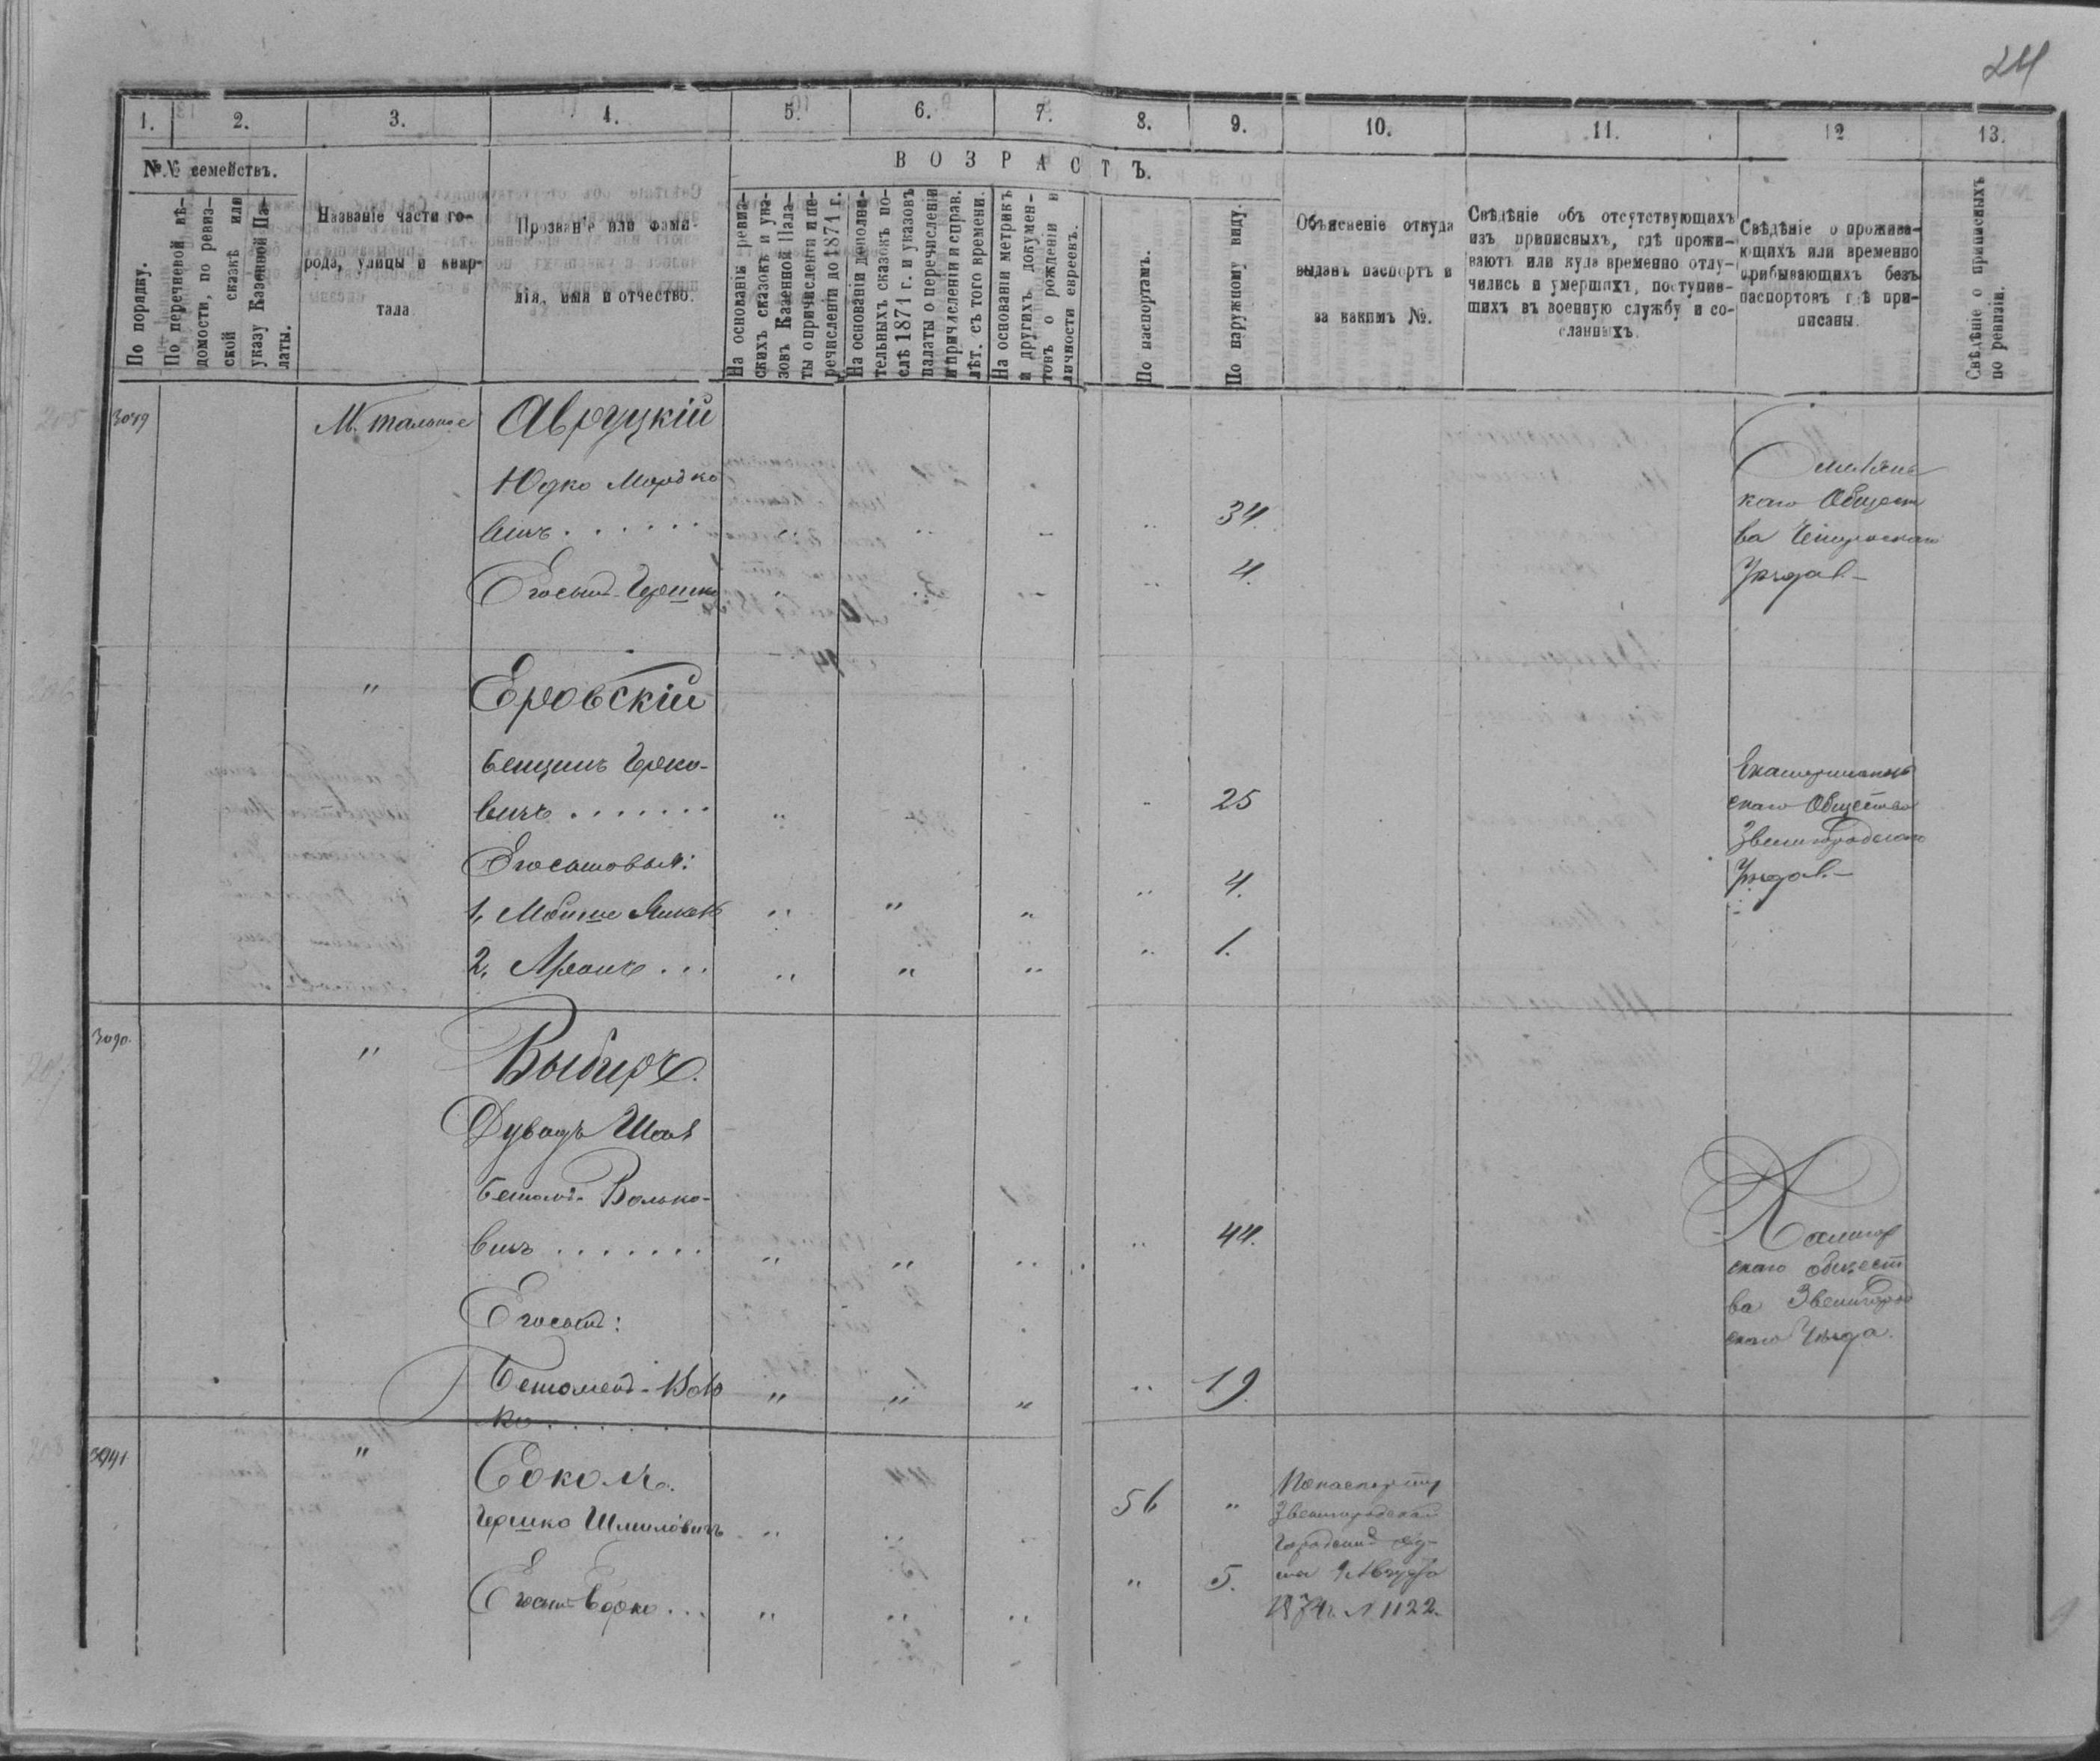 24
1. 2. 3. 4. 5. 6. 7. 8. 9. 10. 11. 12 13.
№.№ семействъ.
ВОЗРАСТЪ.
По порядку.
По перечневой вѣ-
домости, по ревиз-
ской сказкѣ или
указу Казенной Па-
латы.
Названіе части го-
рода, улицы и квар-
тала
Прозваніе или фами-
лія, имя и отчество.
На основаніи ревиз-
скихъ сказокъ и ука-
зовъ Казенной Пала-
ты о причисленіи и пе-
речисленіи до 1871 г.
На основаніи дополни-
тельныхъ сказокъ по-
слѣ 1871 г. и указовъ
палаты о перечисленіи
и причисленіи и справ.
лѣт. съ того времени.
На основаніи метрикъ
и другихъ докумен-
товъ о рожденіи и
личности евреевъ.
По паспортамъ.
По наружному виду.
Объясненіе откуда
выданъ паспортъ и
за какимъ №.
Свѣдѣніе объ отсутствующихъ
изъ приписныхъ, гдѣ прожи-
ваютъ или куда временно отлу-
чились и умершихъ, поступив-
шихъ въ военную службу и со-
сланныхъ.
Свѣдѣніе о прожива-
ющихъ или временно
прибывающихъ безъ
паспортовъ гдѣ при-
писаны.
Свѣдѣніе о приписныхъ
по ревизіи.
205 М. Тальное Авруцкій
Юдко Мордко
вичъ . . . . . . 34.
Его сынъ Гершко 4.
каго Общест
ва Чигиринскаго
Уѣзда.
206 " Еровскій
Берко-
вичъ . . . . . . . 25
Его сыновья:
1, 4.
2, Аронъ . . . 1.
скаго Общества
Звенигородскаго
Уѣзда.
3090. " Выборъ.
Волько-
вичъ . . . . . . . 44.
Его сынъ:
19.
ко . . . . . .
скаго общест
ва Звенигород
скаго Уѣзда.
208 " Соколъ.
Гершко Шмилевичъ 56 "
Его сынъ Берко . . . " 5.
По паспорту
Звенигородской
Городской Ду-
мы 9 Августа
1874 г. № 1122.